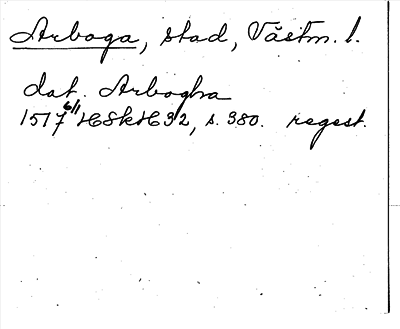 Arboga, stad, Västm. l.
dat. Arbogha
1517 6/11 HSkH 32, s. 380. regest.